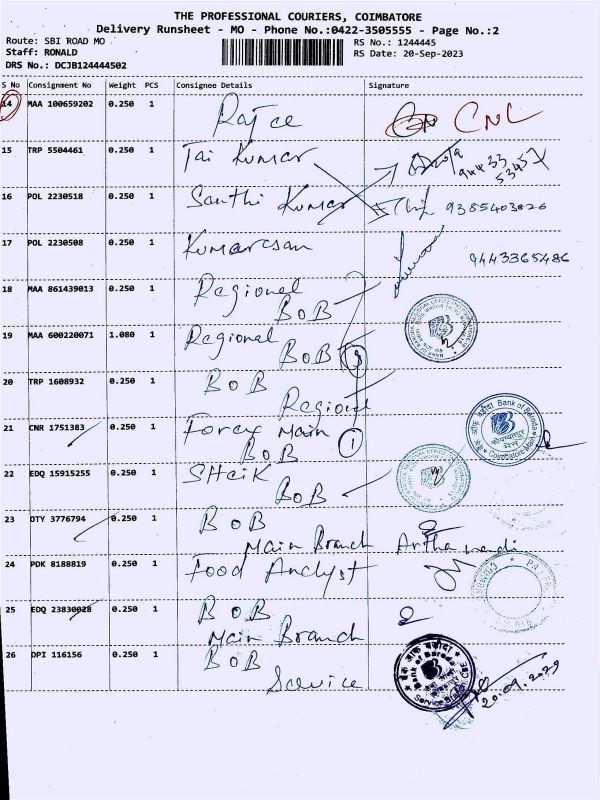 THE PROFESSIONAL COURIERS, COIMBATORE
Delivery Runsheet - MO - Phone No.:0422-3505555 - Page No.:2
Route: SBI ROAD MO
RS No.: 1244445
Staff: RONALD
RS Date: 20-Sep-2023
DRS No.: DCJB124444502
S No Consignment No Weight PCS Consignee Details Signature
14 MAA 100659202 0.250 1 CNC
15 TRP 5504461 0.250 1 Jai Kumar
94433
53457
16 POL 2230518 0.250 1 Santhi Kumar 9385403826
17 POL 2230508 0.250 1 Kumaresan 9443365486
18 MAA 861439013 0.250 1 Regional
BOB
19 MAA 600220071 1.080 1 Regional
BOB 3
20 TRP 1608932 0.250 1 BOB
Regional
21 CNR 1751383 0.250 1 Forex Main
BOB 1
बैंक ऑफ़ बड़ौदा Bank of Baroda
Coimbatore Main
22 EDQ 15915255 0.250 1 SHeiK
BOB
23 DTY 3776794 0.250 1 BOB
Main Branch
24 PDK 8188819 0.250 1 Food Analyst
25 EDQ 23830028 0.250 1 BOB
Main Branch
26 DPI 116156 0.250 1 BOB
Service
बैंक ऑफ़ बड़ौदा
Bank of Baroda
Service Branch CBE
20.09.2023